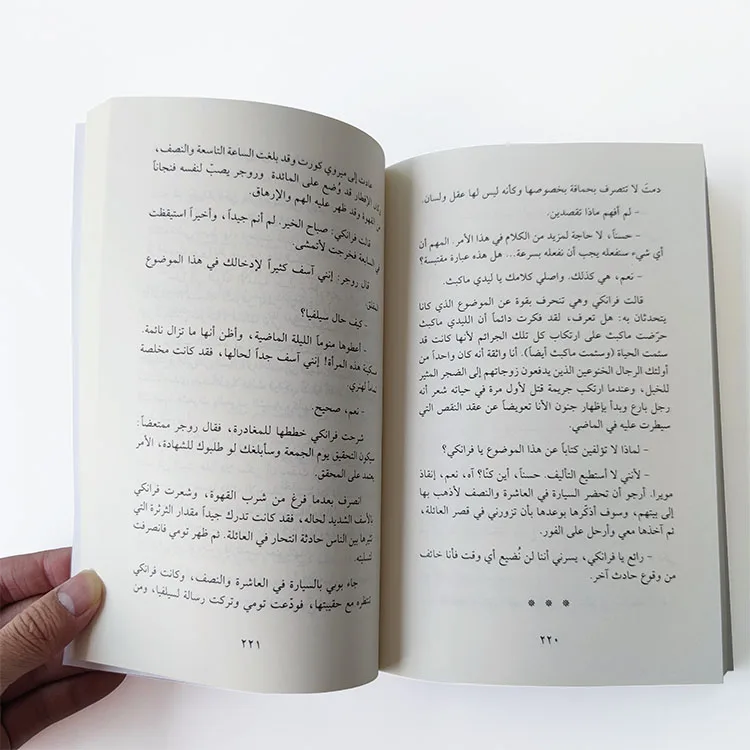 دمتَ لا تتصرف بحماقة بخصوصها وكأنه ليس لها عقل ولسان.
- لم أفهم ماذا تقصدين.
- حسناً، لا حاجة لمزيد من الكلام في هذا الأمر. المهم أن
أي شيء سنفعله يجب أن نفعله بسرعة... هل هذه عبارة مقتبسة؟
- نعم، هي كذلك. واصلي كلامك يا ليدي ماكبث.
قالت فرانكي وهي تنحرف بقوة عن الموضوع الذي كانا
يتحدثان به: هل تعرف، لقد فكرت دائماً أن الليدي ماكبث
حرّضت ماكبث على ارتكاب كل تلك الجرائم لأنها كانت قد
سئمت الحياة (وسئمت ماكبث أيضاً). أنا واثقة أنه كان واحداً من
أولئك الرجال الخنوعين الذين يدفعون زوجاتهم إلى الضجر المثير
للخبل، وعندما ارتكب جريمة قتل لأول مرة في حياته شعر أنه
رجل بارع وبدأ بإظهار جنون الأنا تعويضاً عن عقد النقص التي
سيطرت عليه في الماضي.
- لماذا لا تؤلفين كتاباً عن هذا الموضوع يا فرانكي؟
- لأنني لا أستطيع التأليف. حسناً، أين كنّا؟ آه، نعم، إنقاذ
مويرا. أرجو أن تحضر السيارة في العاشرة والنصف لأذهب بها
إلى بيتهم، وسوف أذكّرها بوعدها بأن تزورني في قصر العائلة،
ثم آخذها معي وأرحل على الفور.
- رائع يا فرانكي، يسرني أننا لن نُضيع أي وقت فأنا خائف
من وقوع حادث آخر.
* * *
٢٢٠
عادت إلى ميروي كورت وقد بلغت الساعة التاسعة والنصف،
وكان الإفطار قد وُضع على المائدة وروجر يصبّ لنفسه فنجاناً
من القهوة وقد ظهر عليه الهم والإرهاق.
قالت فرانكي: صباح الخير. لم أنم جيداً، وأخيراً استيقظت
في السابعة فخرجت لأتمشى.
قال روجر: إنني آسف كثيراً لإدخالك في هذا الموضوع
المقلق.
- كيف حال سيلفيا؟
- أعطوها منوماً الليلة الماضية، وأظن أنها ما تزال نائمة.
سكينة هذه المرأة! إنني آسف جداً لحالها، فقد كانت مخلصة
تماماً لهنري
- نعم، صحيح.
شرحت فرانكي خططها للمغادرة، فقال روجر ممتعضاً:
سيكون التحقيق يوم الجمعة وسأبلغك لو طلبوك للشهادة، الأمر
يعتمد على المحقق.
انصرف بعدما فرغ من شرب القهوة، وشعرت فرانكي
بالأسف الشديد لحاله، فقد كانت تدرك جيداً مقدار الثرثرة التي
تثيرها بين الناس حادثة انتحار في العائلة. ثم ظهر تومي فانصرفت
لتسليته.
جاء بوبي بالسيارة في العاشرة والنصف، وكانت فرانكي
تنتظره مع حقيبتها، فودّعت تومي وتركت رسالة لسيلفيا، ومن
٢٢١